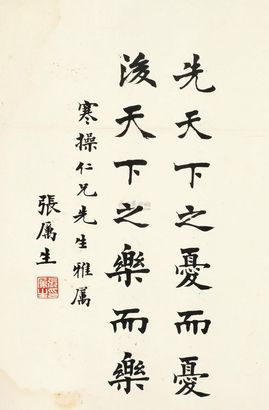 先天下之憂而憂
後天下之樂而樂
寒操仁兄先生雅屬
張厲生